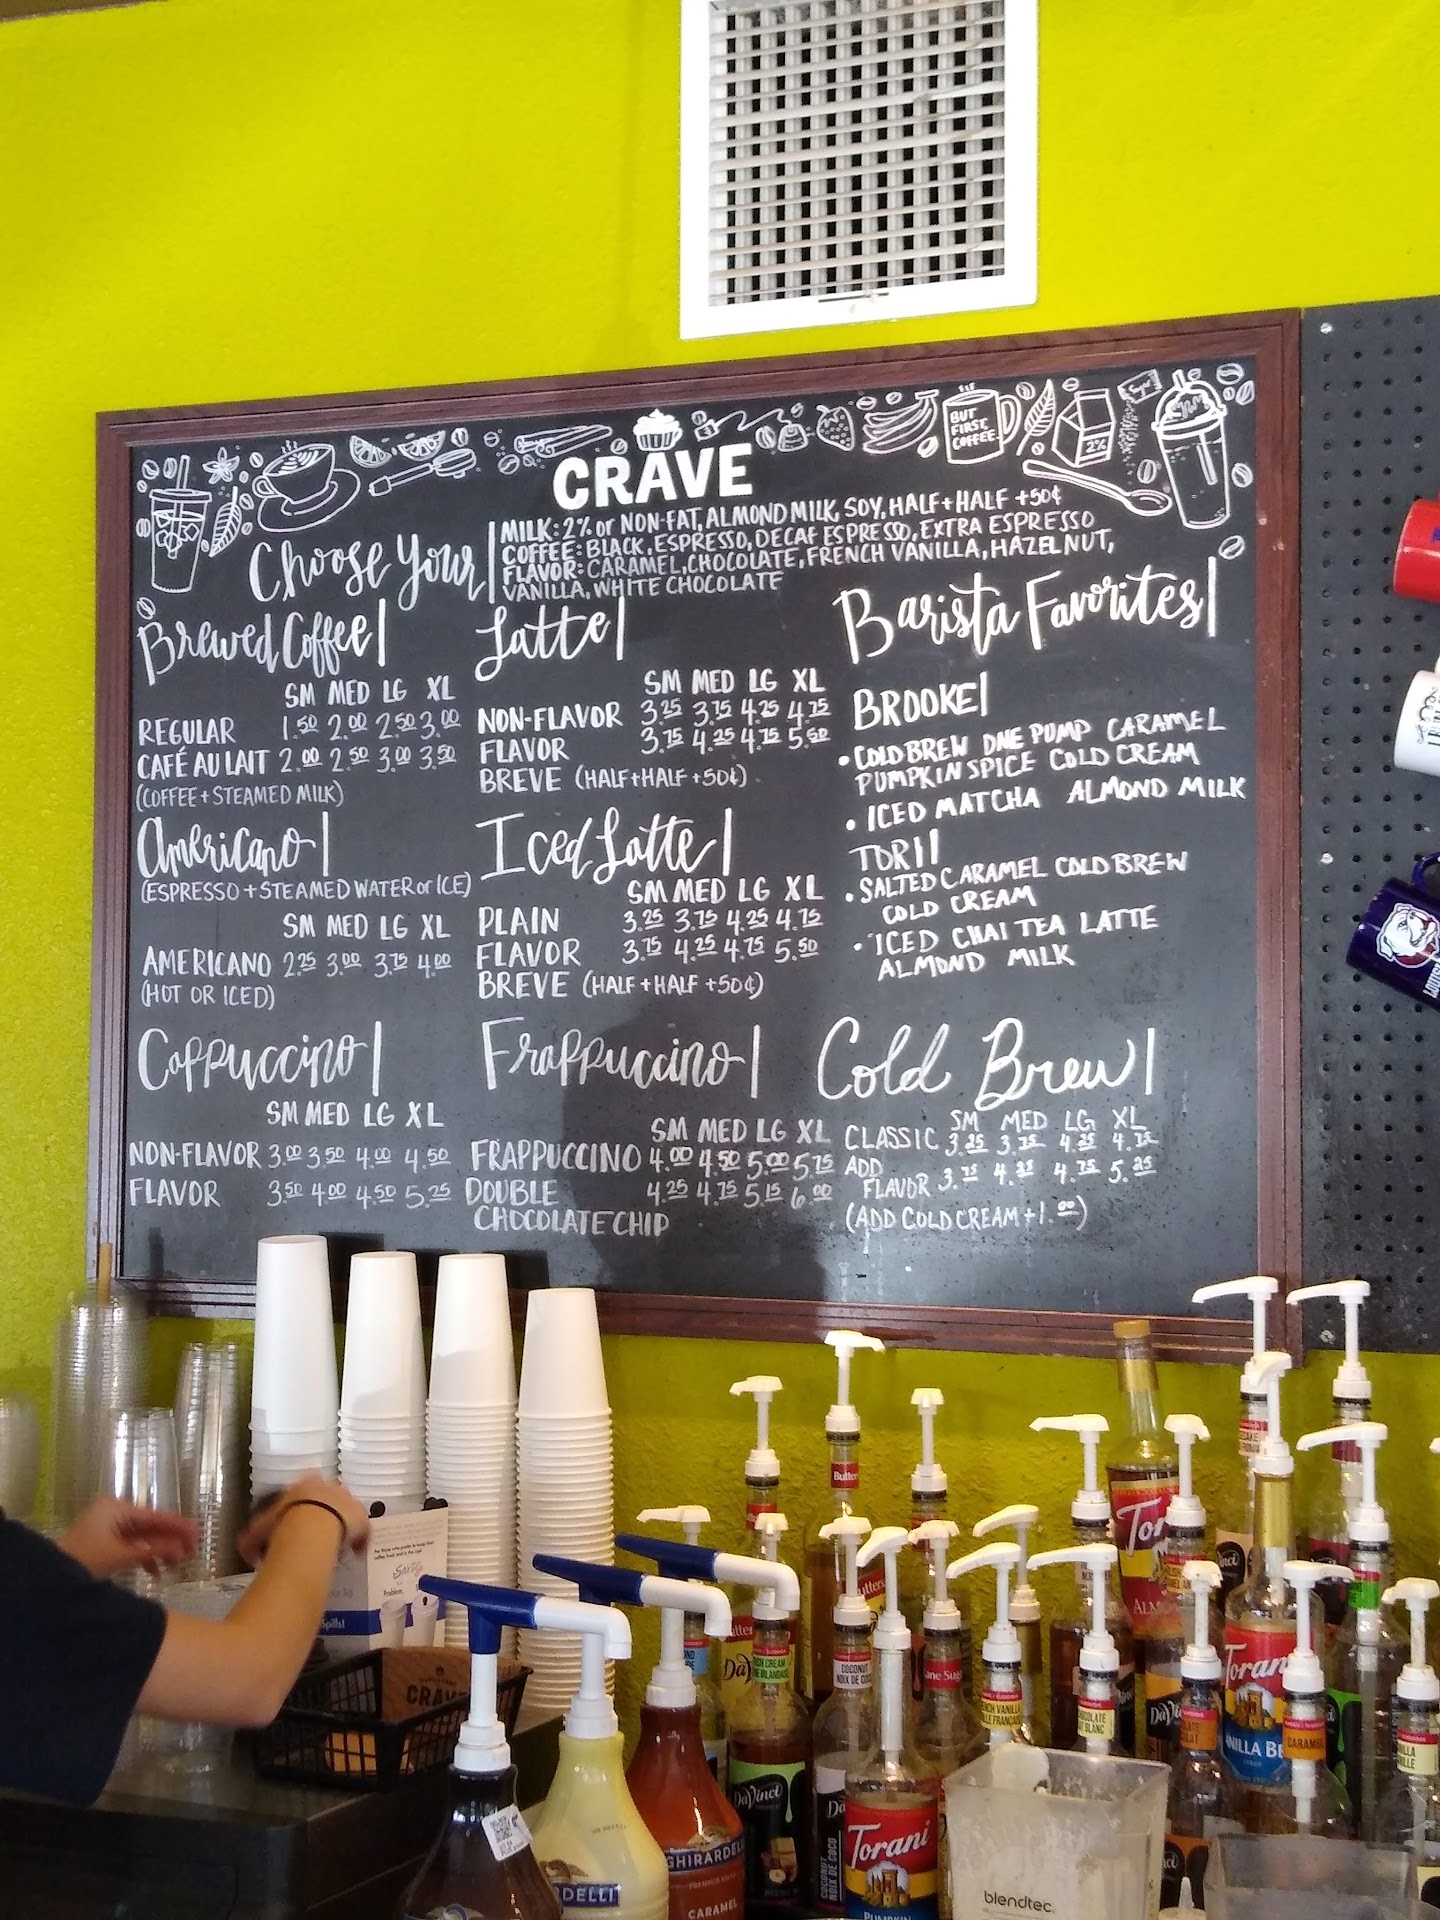 BUT
FIRST,
COFFEE
2%
CRAVE
Choose Your
MILK: 2% or NON-FAT, ALMOND MILK, SOY, HALF + HALF +50¢
COFFEE: BLACK, ESPRESSO, DECAF ESPRESSO, EXTRA ESPRESSO
FLAVOR: CARAMEL, CHOCOLATE, FRENCH VANILLA, HAZELNUT,
VANILLA, WHITE CHOCOLATE
Brewed Coffee
SM MED LG XL
REGULAR 1.50 2.00 2.50 3.00
CAFÉ AU LAIT 2.00 2.50 3.00 3.50
(COFFEE + STEAMED MILK)
Americano
(ESPRESSO + STEAMED WATER or ICE)
SM MED LG XL
AMERICANO 2.25 3.00 3.75 4.00
(HOT OR ICED)
Cappuccino
SM MED LG XL
NON-FLAVOR 3.00 3.50 4.00 4.50
FLAVOR 3.50 4.00 4.50 5.25
Latte
SM MED LG XL
NON-FLAVOR 3.25 3.75 4.25 4.75
FLAVOR 3.75 4.25 4.75 5.50
BREVE (HALF + HALF +50¢)
Iced Latte
SM MED LG XL
PLAIN 3.25 3.75 4.25 4.75
FLAVOR 3.75 4.25 4.75 5.50
BREVE (HALF + HALF +50¢)
Frappuccino
SM MED LG XL
FRAPPUCCINO 4.00 4.50 5.00 5.75
DOUBLE 4.25 4.75 5.15 6.00
CHOCOLATE CHIP
Barista Favorites
BROOKE
• COLD BREW ONE PUMP CARAMEL
PUMPKIN SPICE COLD CREAM
• ICED MATCHA ALMOND MILK
TORI
• SALTED CARAMEL COLD BREW
COLD CREAM
• ICED CHAI TEA LATTE
ALMOND MILK
Cold Brew
SM MED LG XL
CLASSIC 3.25 3.75 4.25 4.75
ADD
FLAVOR 3.75 4.25 4.75 5.25
(ADD COLD CREAM +1.00)
Problem,
Spills!
CRAVE
GHIRARDELLI
CARAMEL
DaVinci
COCONUT
NOIX DE COCO
Torani
PUMPKIN
Torani
CARAMEL
blendtec